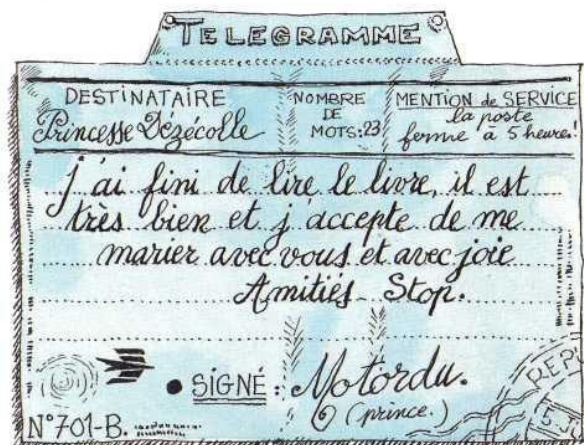 TELEGRAMME
DESTINATAIRE
Princesse Dézécolle
NOMBRE
DE
MOTS:23
MENTION de SERVICE
la poste
ferme à 5 heures.
j'ai fini de lire le livre, il est
très bien et j'accepte de me
marier avec vous et avec joie
Amitiés Stop.
• SIGNÉ : Motordu.
(prince.)
N°701-B.
REP